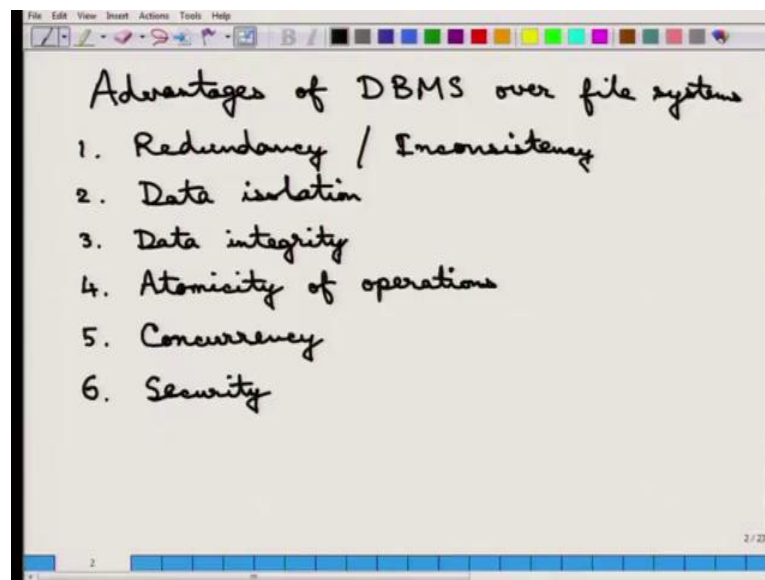 File Edit View Insert Actions Tools Help
Advantages of DBMS over file systems
1. Redundancy / Inconsistency
2. Data isolation
3. Data integrity
4. Atomicity of operations
5. Concurrency
6. Security
2 / 23
2